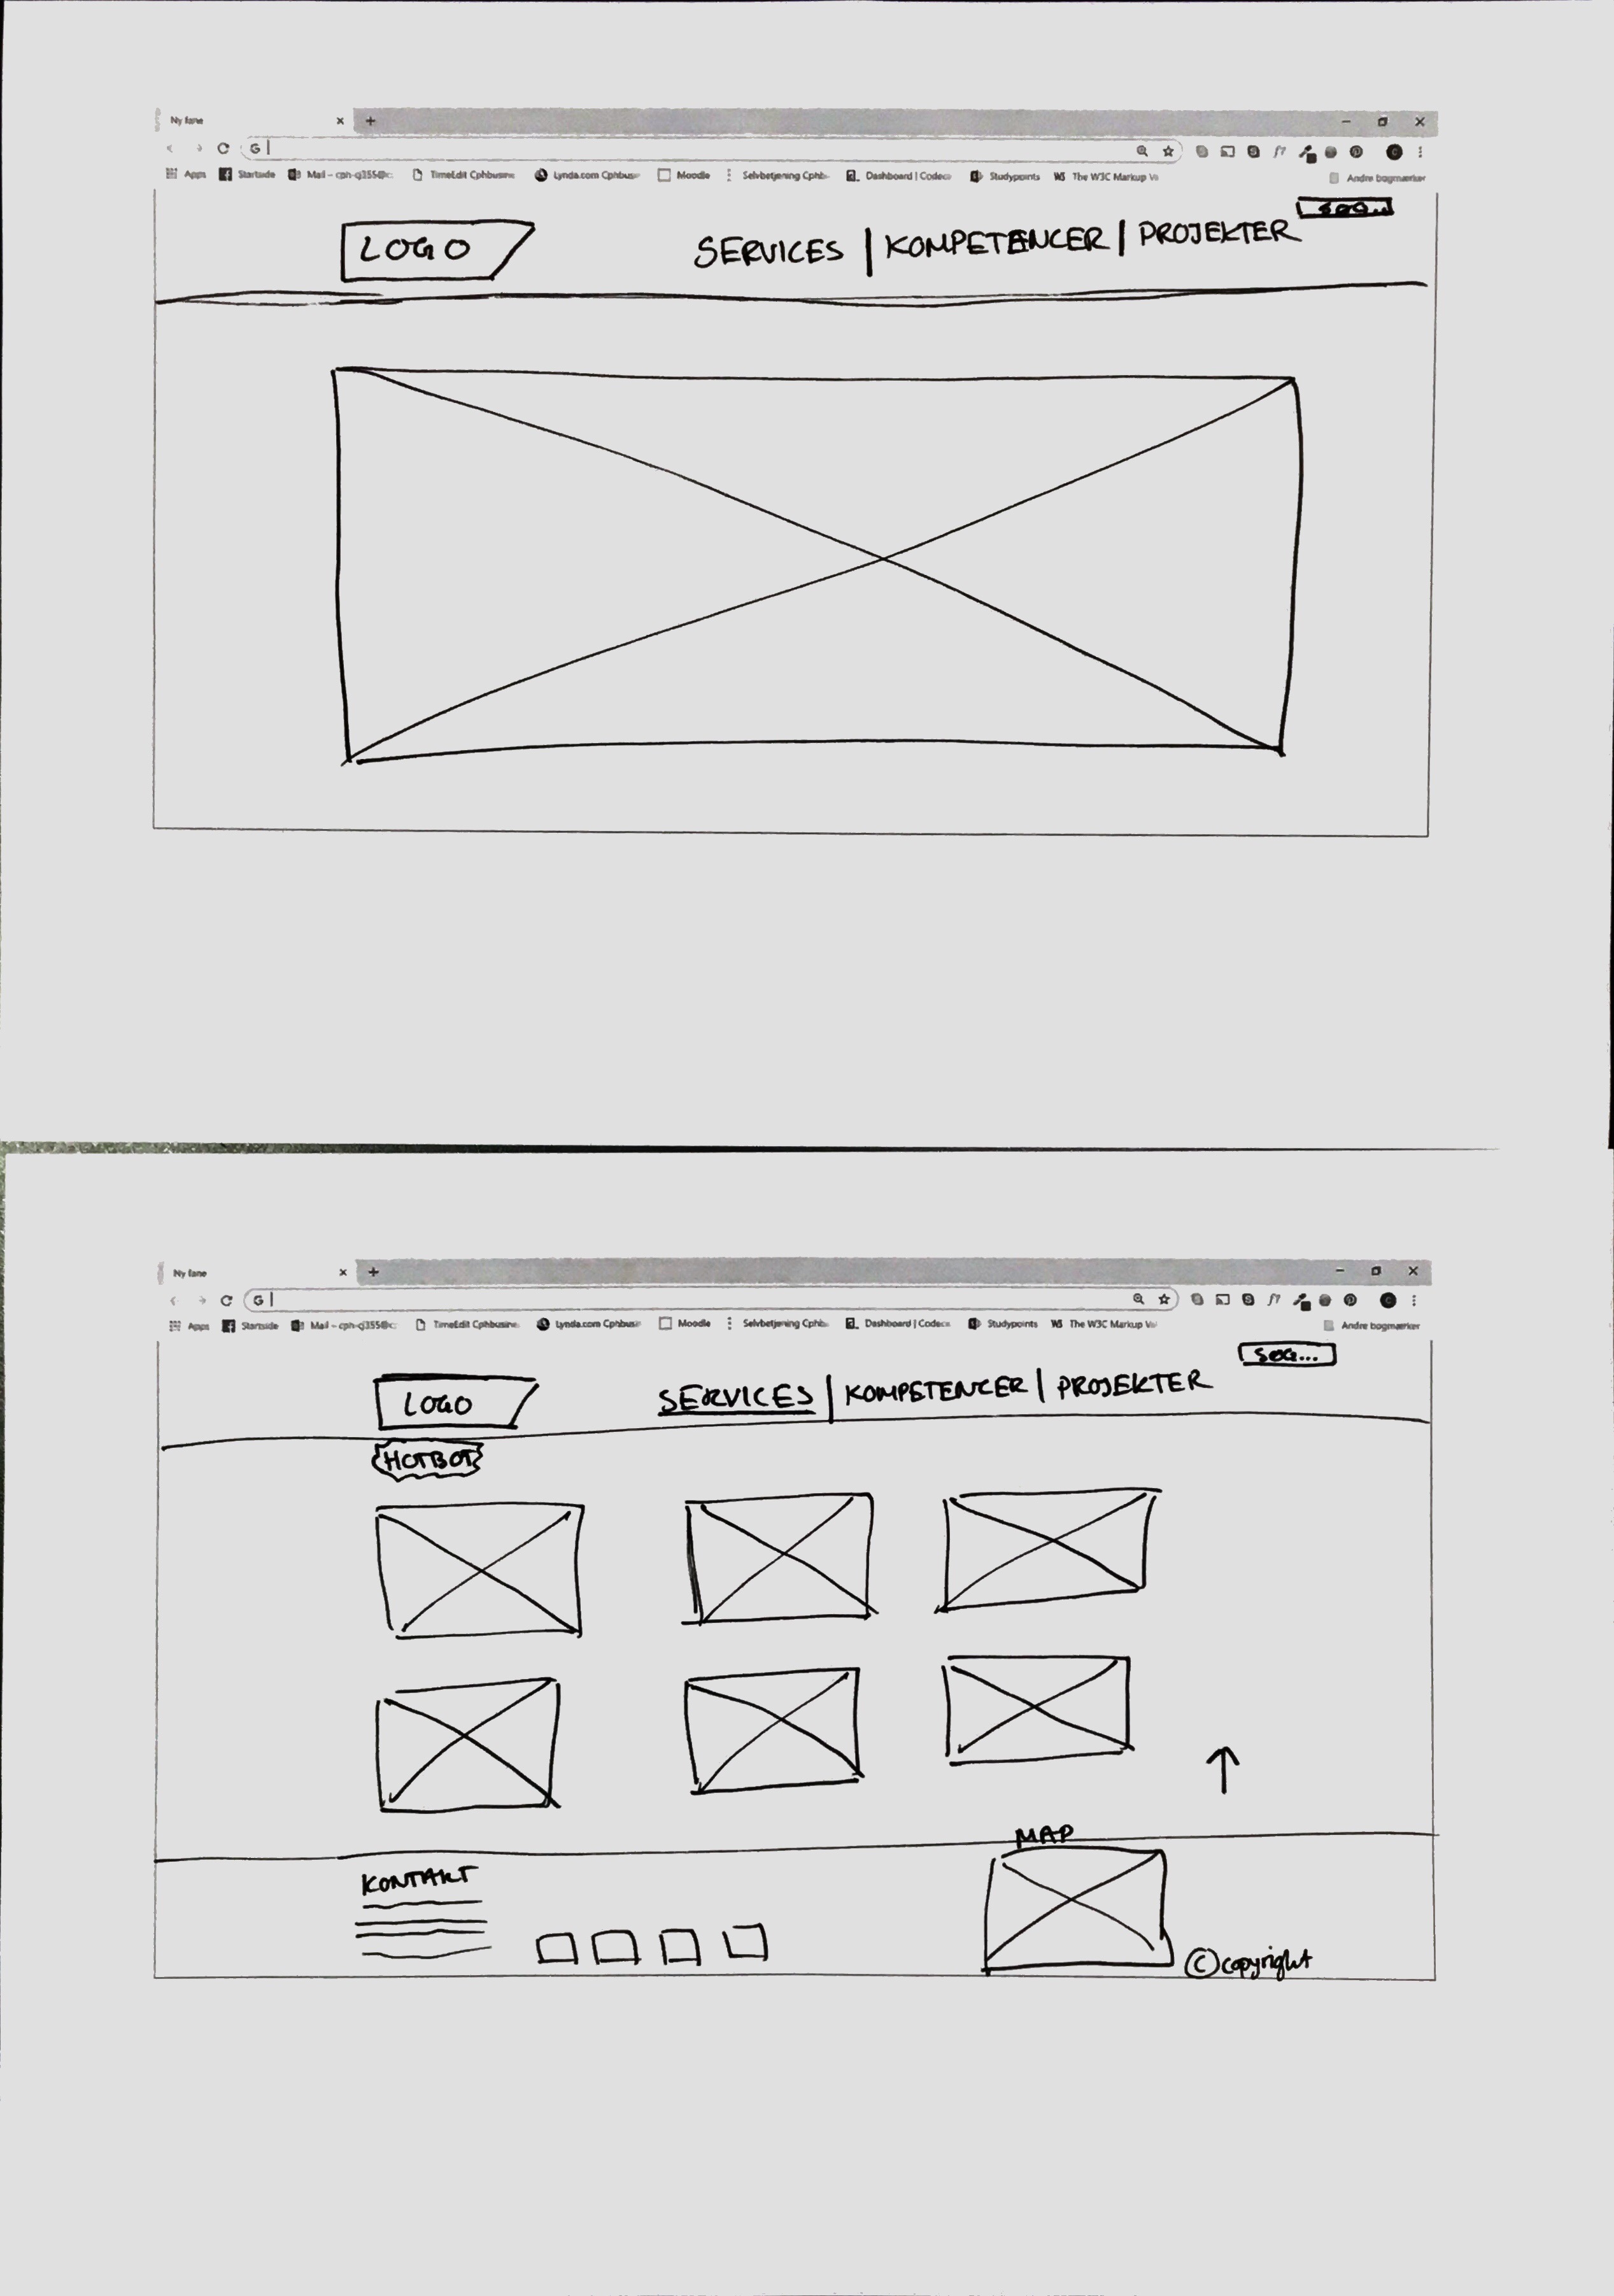 Ny fane
Apps Startside Mail – cph-cj355@c: TimeEdit Cphbusine Lynda.com Cphbus Moodle Selvbetjening Cphb Dashboard | Codec Studypoints The W3C Markup Va Andre bogmærker
SØG...
LOGO SERVICES | KOMPETENCER | PROJEKTER
Ny fane
Apps Startside Mail – cph-cj355@c: TimeEdit Cphbusine Lynda.com Cphbus Moodle Selvbetjening Cphb Dashboard | Codec Studypoints The W3C Markup Va Andre bogmærker
SØG...
LOGO SERVICES | KOMPETENCER | PROJEKTER
HOTBOT
MAP
KONTAKT
© copyright